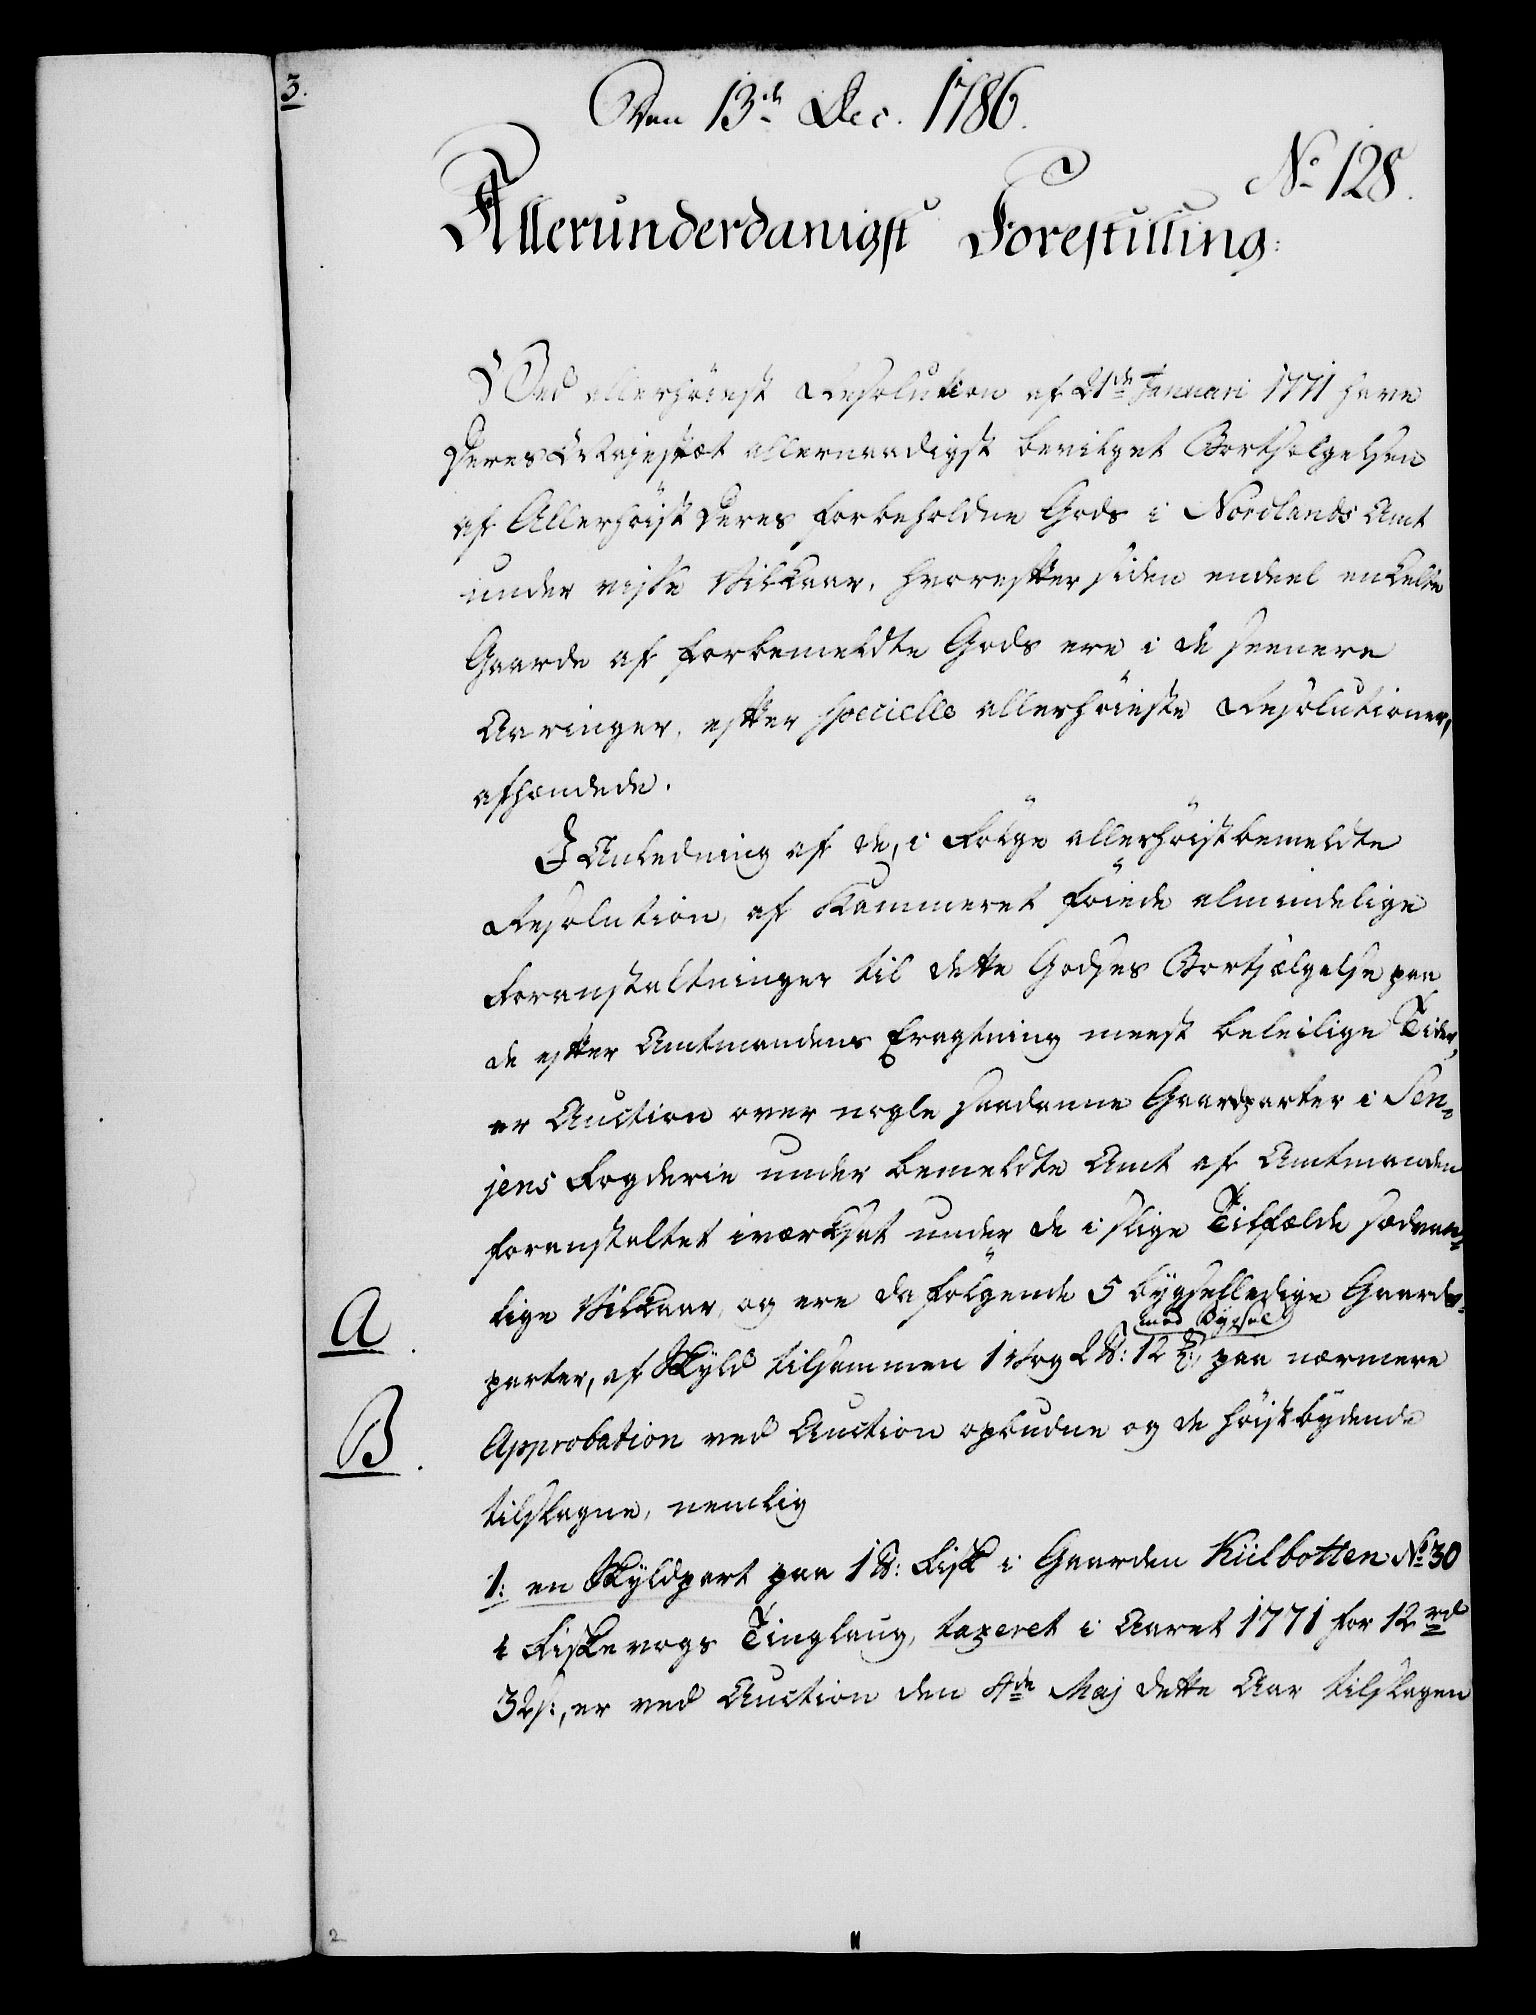 3.
Den 13de Dec. 1786.
No 128.
Allerunderdanigst Forestilling:
Ved allerhöiest Resolution af 21de Januari 1771 have
Deres Majestæt allernaadigst bevilget Bortsælgelsen
af Allerhöist Deres forbeholdne Gods i Nordlands Amt
under visse Vilkaar, hvorefter siden endeel enkelte
Gaarde af forbemeldte Gods ere i de seenere
Aaringer, efter specielle allerhöieste Resolutioner,
afhændede.
I Anledning af de, i Fölge allerhöistbemeldte
Resolution, af Kammeret föiede almindelige
Foranstaltninger til dette Godses Bortsælgelse paa
de efter Amtmandens Eragtning meest beleilige Tider,
er Auction over nogle saadanne Gaardparter i Sen-
jens Fogderie under bemeldte Amt af Amtmanden
foranstaltet iværksat under de i slige Tilfælde sædvan-
lige Vilkaar, og ere da fölgende 5 bygselledige Gaard-
A.
med Bygsel
parter, af Skyld tilsammen 1 Vog 2 ℔: 12 ℔:, paa nærmere
B.
Approbation ved Auction opbudne og de höistbydende
tilslagne, nemlig
1: en Skyldpart paa 1 ℔: Fisk i Gaarden Külbotten No 30
i Fiskevogs Tinglaug, taxeret i Aaret 1771 for 12 rd
32 s:, er ved Auction den 4de Maj dette Aar tilslagen
2